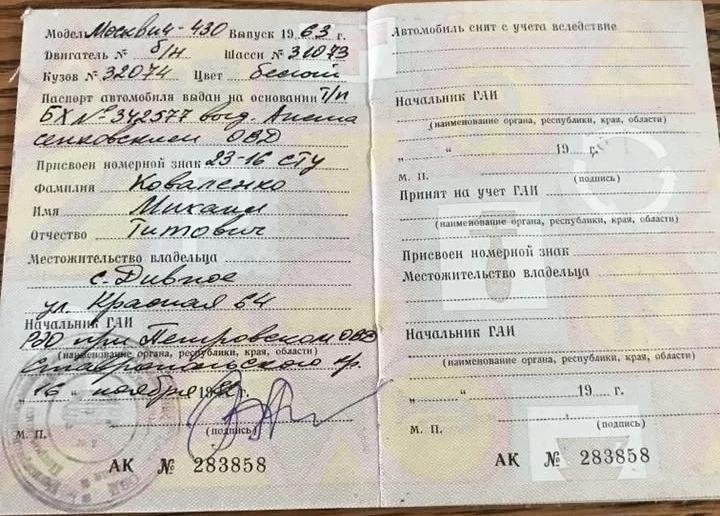 Модель Москвич-430 Выпуск 1963 г.
Двигатель № б/н Шасси № 31073
Кузов № 32074 Цвет белый
Паспорт автомобиля выдан на основании Т/п
БХ № 342577 выд. Апана
сенковским ОВД
Присвоен номерной знак 23-16 СТУ
Фамилия Коваленко
Имя Михаил
Отчество Титович
Местожительство владельца
с. Дивное
ул. Красная 64
Начальник ГАИ
РЭО при Петровском ОВД
(наименование органа, республики, края, области)
Ставропольского кр.
16 " ноября 19 г.
М. П. (подпись)
АК № 283858
Автомобиль снят с учета вследствие
Начальник ГАИ
(наименование органа, республики, края, области)
„ “ 19 г.
М. П. (подпись)
Принят на учет ГАИ
(наименование органа, республики, края, области)
Присвоен номерной знак
Местожительство владельца
Начальник ГАИ
(наименование органа, республики, края, области)
„ “ 19 г.
М. П. (подпись)
АК № 283858